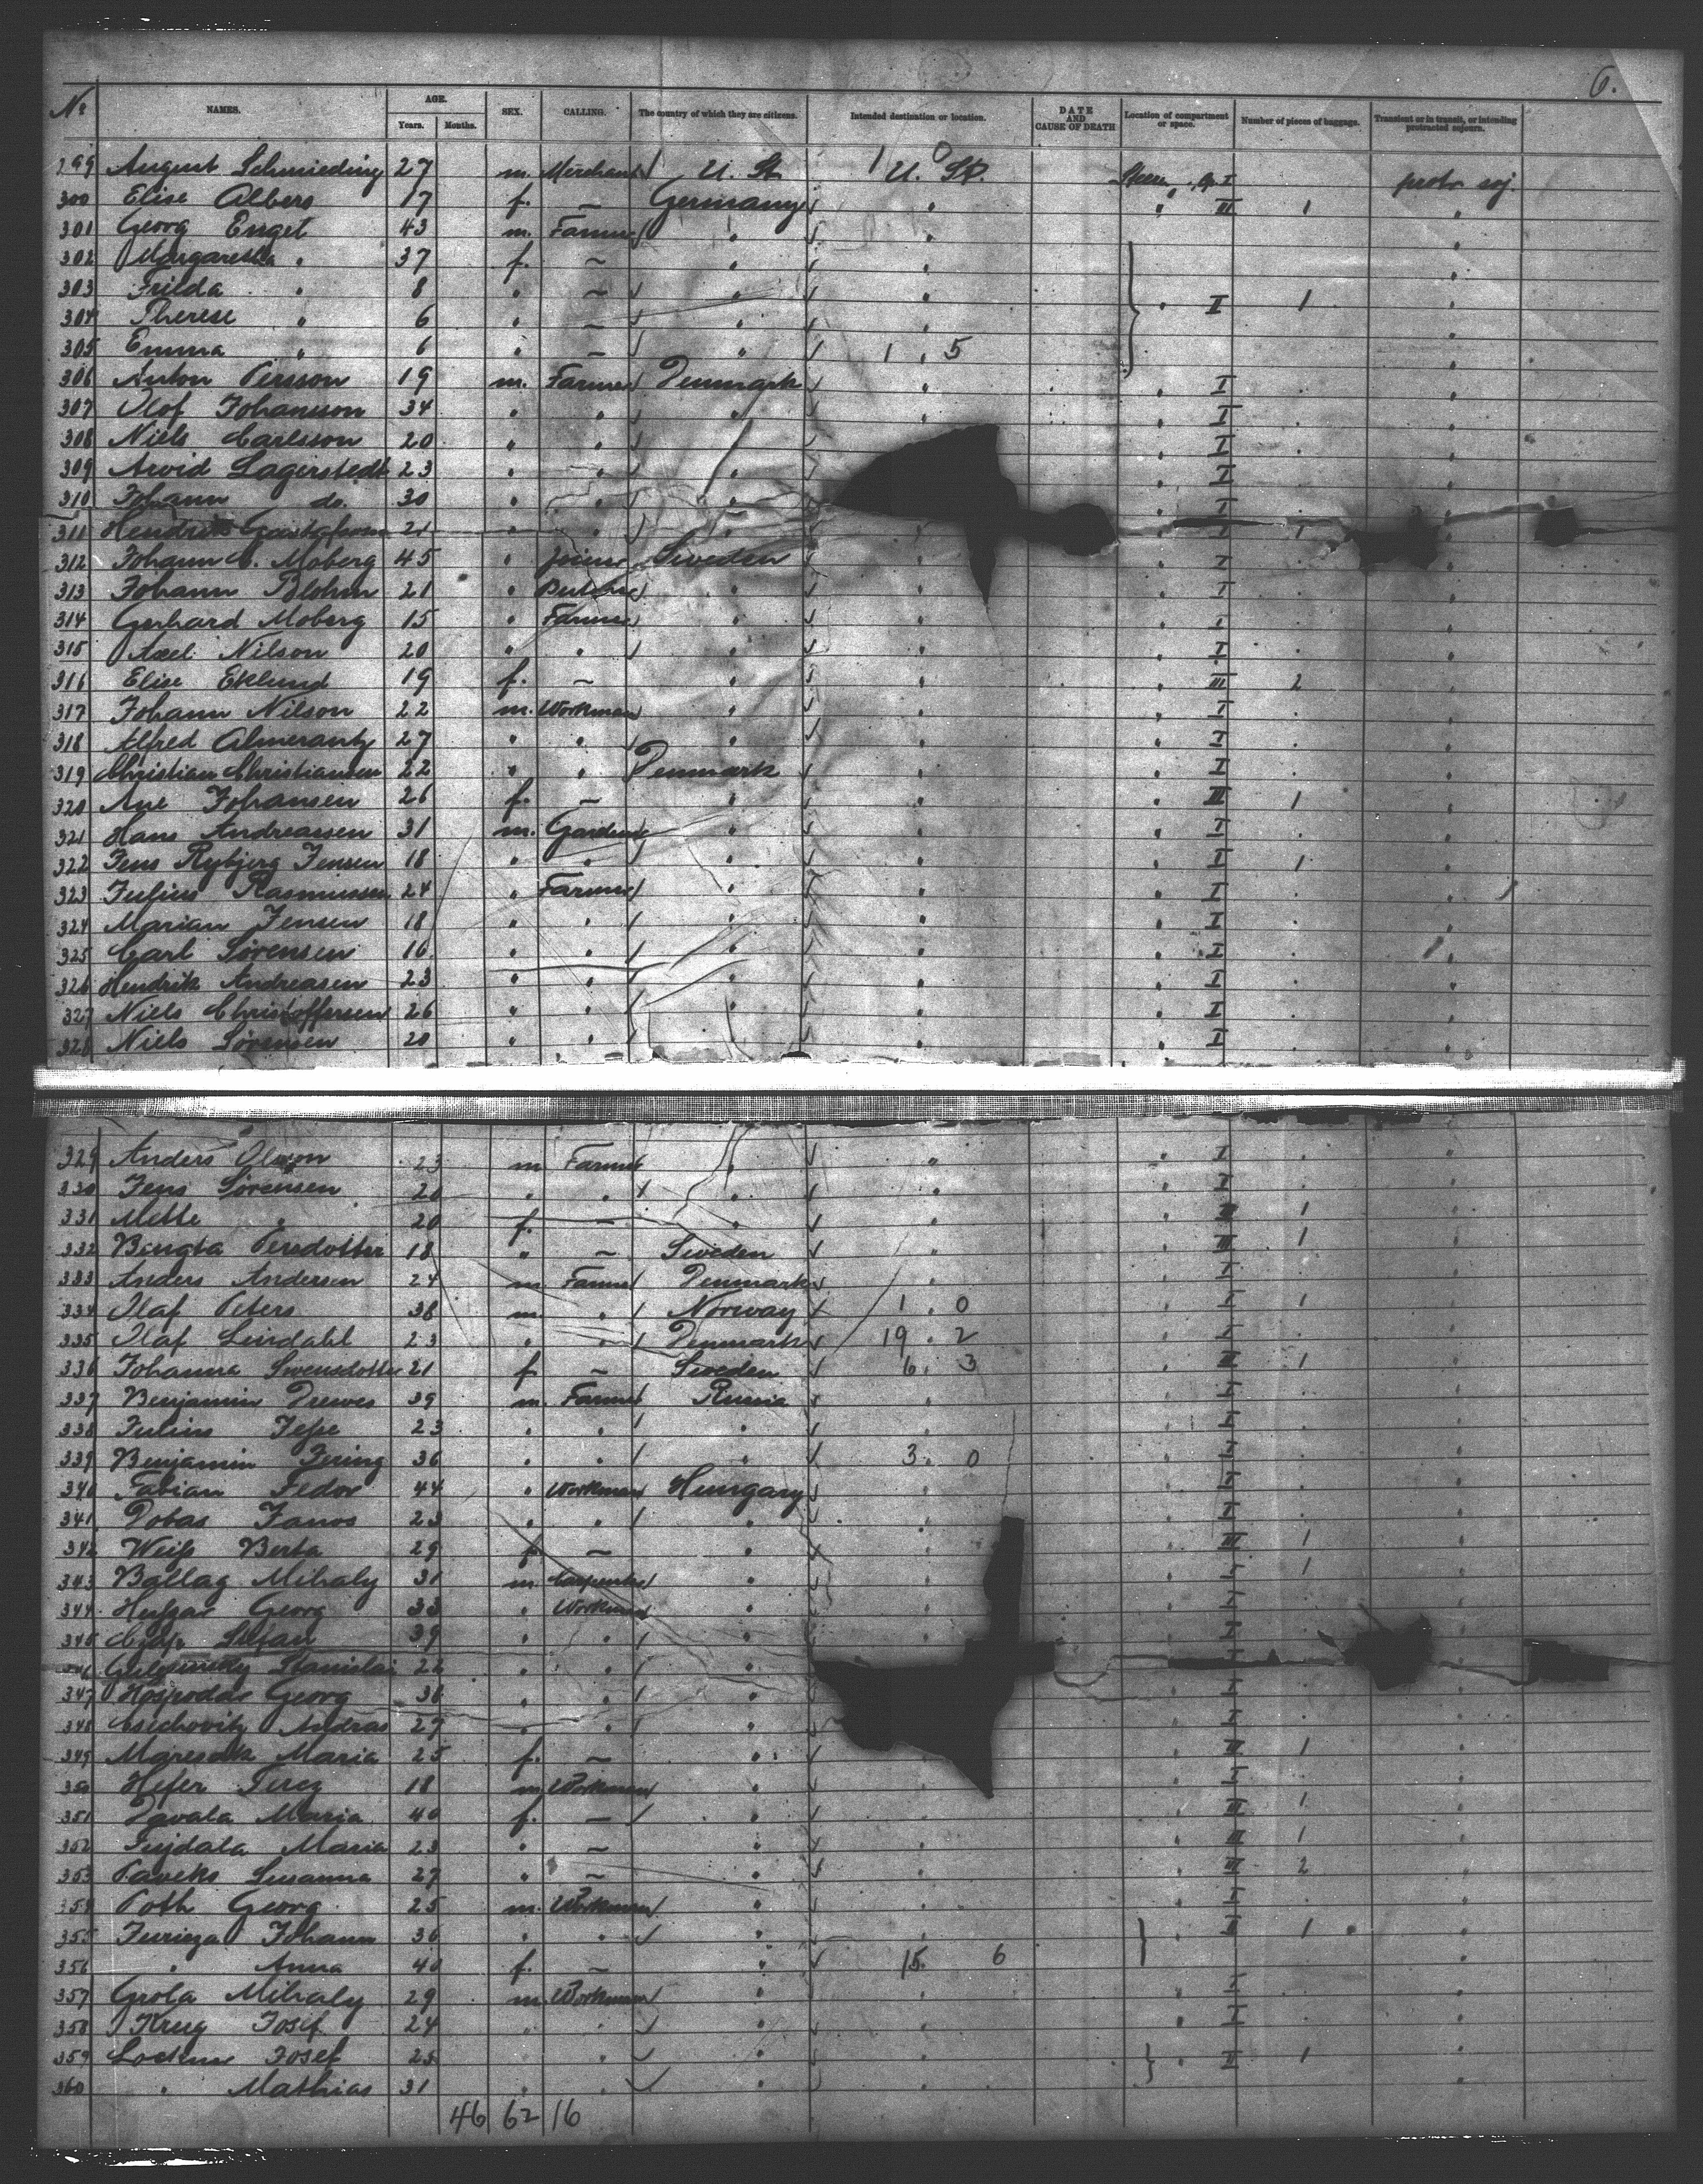 6.
No NAMES. AGE. Years. Months. SEX. CALLING. The country of which they are citizens. Intended destination or location. DATE AND CAUSE OF DEATH Location of compartment or space. Number of pieces of baggage. Transient or in transit, or intending protracted sojourn.
299 August Schmieding 27 m. Merchant U. St. U. St. I protr soj.
300 Elise Albers 17 f. — Germany " " III 1 "
301 Georg Engel 43 m. Farmer " " "
302 Margaretha " 37 f. — " " "
303 Frieda " 8 " — " " " II 1 "
304 Therese " 6 " — " " "
305 Emma " 6 " — " 1 " 5 "
306 Anton Persson 19 m. Farmer Denmark " " I " "
307 Olof Johansson 34 " " " " " I " "
308 Niels Carlsson 20 " " " " I " "
309 Arvid Lagerstedt 23 " " " " I " "
310 Johann do. 30 " " " " I "
311 Hendrik 21 " " " " " I 1 "
312 Johann C. Moberg 45 " Joiner Sweden " " I " "
313 Johann Blohm 21 " " " " I " "
314 Gerhard Moberg 15 " Farmer " " " I " "
315 Axel Nilson 20 " " " " " I " "
316 Elise Eklund 19 f. — " " " III 2 "
317 Johann Nilson 22 m. Workman " " " I " "
318 Alfred Almerantz 27 " " " " " I " "
319 Christian Christiansen 22 " " Denmark " " I " "
320 Ane Johansen 26 f. — " " " III 1 "
321 Hans Andreassen 31 m. Gardener " " " I " "
322 Jens Rybjerg Jensen 18 " " " " " I 1 "
323 Julius Rasmussen 24 " Farmer " " " I " "
324 Marian Jensen 18 " " " " " I " "
325 Carl Sörensen 16 " " " " " I " "
326 Hendrik Andreasen 23 " " " " " I " "
327 Niels Christoffersen 26 " " " " " I " "
328 Niels Sörensen 20 " " " " " I " "
329 Anders Olsson 23 m Farmer " " " I " "
330 Jens Sörensen 20 " " " " " I " "
331 Mette " 20 f. — " " " III 1 "
332 Bengta Persdotter 18 " — Sweden " " III 1 "
333 Anders Andersen 24 m Farmer Denmark " " I " "
334 Olaf Peters 38 m. " Norway 1 . 0 " I 1 "
335 Olaf Lindahl 23 " " Denmark 19 . 2 " I " "
336 Johanna Swensdotter 21 f — Sweden 6 . 3 " III 1 "
337 Benjamin Drewes 39 m. Farmer Russia " " I " "
338 Julius Jesse 23 " " " " " I " "
339 Benjamin Fering 36 " " " 3 . 0 " I " "
340 Fabian Fedor 44 " Workman Hungary " " I " "
341 Dobas Janos 23 " " " " " I " "
342 Weiss Berta 29 f — " " " III 1 "
343 Ballag Mihaly 31 m Carpenter " " " I 1 "
344 Georg 33 " Workman " " " I " "
345 Stefan 39 " " " " I "
346 Stanislai 22 " " " " I "
347 Hospodar Georg 36 " " " " I " "
348 Csechovitz Andras 27 " " " " I " "
349 Maria 25 f. — " " III 1 "
350 Hefer Terez 18 m Workman " " " I " "
351 Zavala Maria 40 f. — " " III 1 "
352 Maria 23 " — " " " III 1 "
353 Paveks Susanna 27 " — " " " III 2 "
354 Toth Georg 25 m. Workman " " " I " "
355 Johann 36 " " " " " II 1 "
356 " Anna 40 f. — " 15. 6 "
357 Grola Mihaly 29 m Workman " " " I " "
358 Krug Josef 24 " " " " " I " "
359 Josef 25 " " " " " II 1 "
360 " Mathias 31 " " " " "
46 62 16